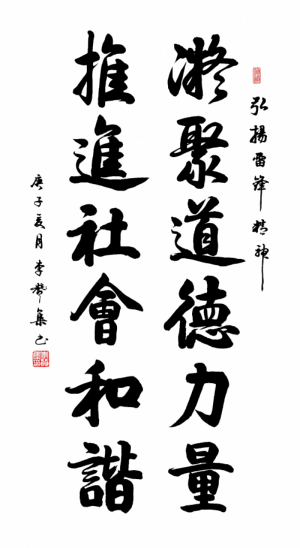 弘揚雷鋒精神
凝聚道德力量
推進社會和諧
庚子夏月李